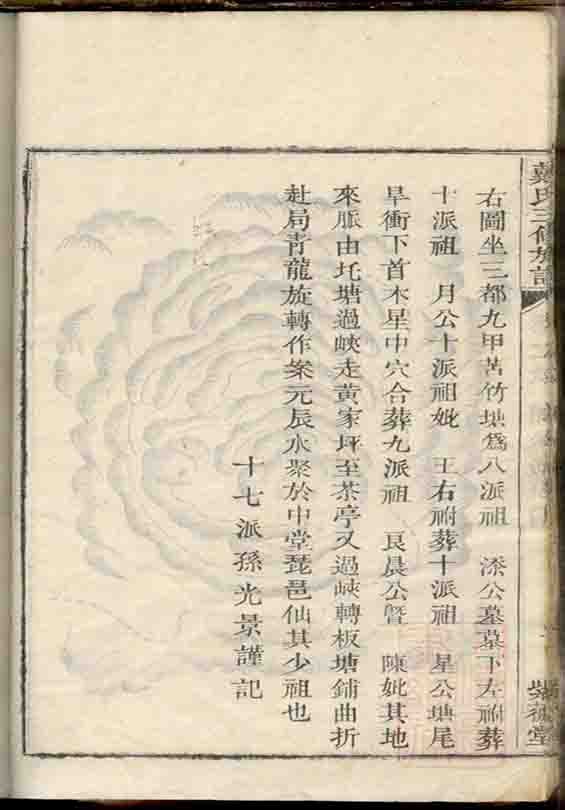 戴氏三修族譜
右圖坐三都九甲苦竹塘爲八派祖 添公墓墓下左祔葬
十派祖 月公十派祖妣 王右祔葬十派祖 星公塘尾
旱衝下首木星中穴合葬九派祖 良晨公曁 陳妣其地
來脈由圫塘過峽走黄家坪至茶亭又過峽轉板塘鋪曲折
赴局青龍旋轉作案元辰水聚於中堂琵琶仙其少祖也
十七派孫光景謹記